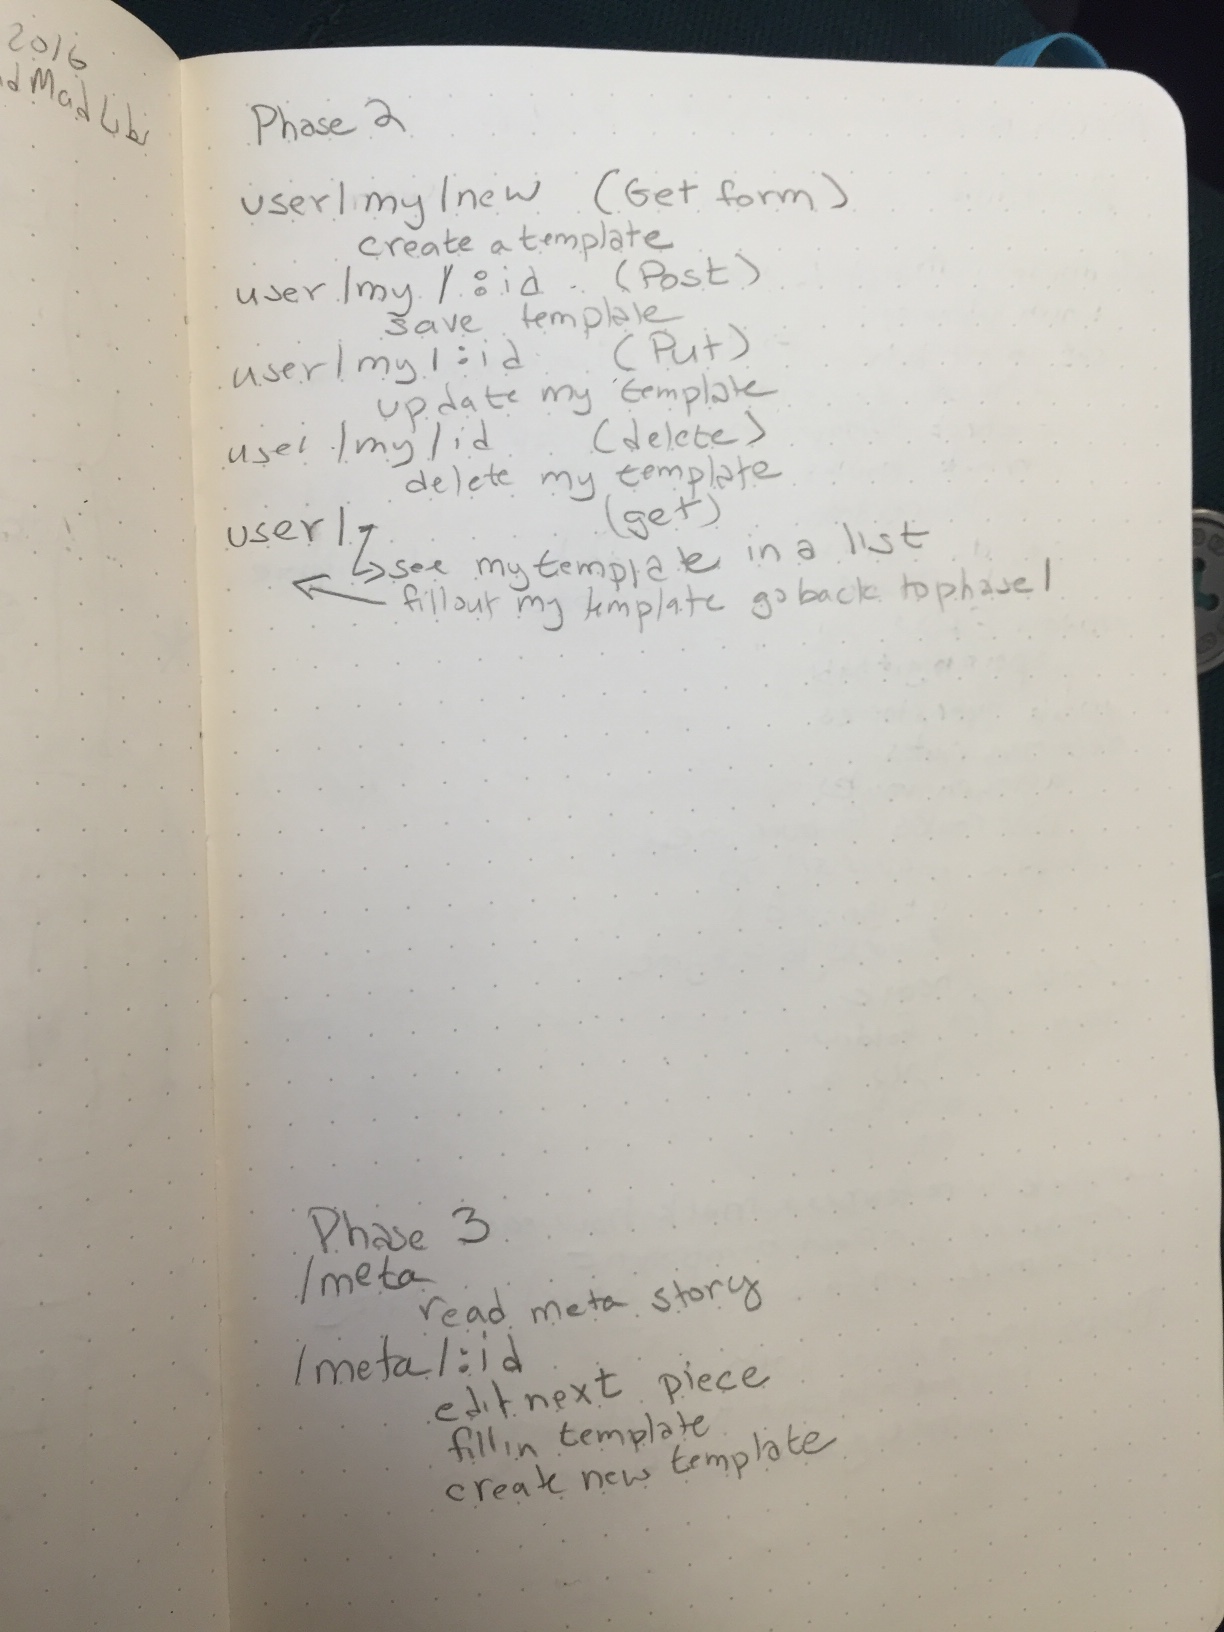 2016
Mad Libs
Phase 2
user/my/new (Get form)
create a template
user/my/:id (Post)
save template
user/my/:id (Put)
update my template
user/my/id (delete)
delete my template
user/ (get)
see my template in a list
fill out my template go back to phase 1
Phase 3
/meta
read meta story
/meta/:id
edit next piece
fill in template
create new template